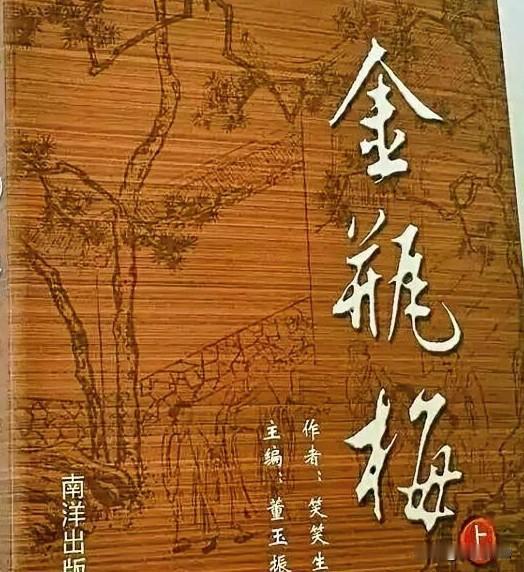 金瓶梅
上
作者：笑笑生
主编：董玉振
南洋出版